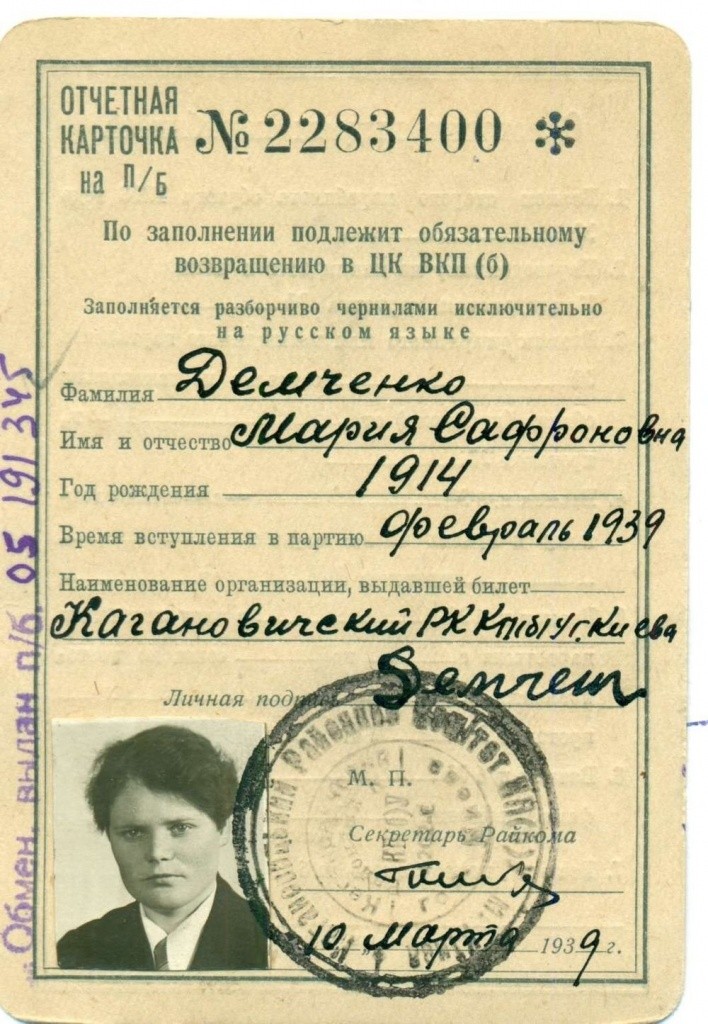 ОТЧЕТНАЯ
КАРТОЧКА
на П/Б
№ 2283400 *
По заполнении подлежит обязательному
возвращению в ЦК ВКП (б)
Заполняется разборчиво чернилами исключительно
на русском языке
Фамилия Демченко
Имя и отчество Мария Сафроновна
Год рождения 1914
Время вступления в партию февраль 1939
Наименование организации, выдавшей билет
Кагановичский РК КП(б)У г. Киева
Личная подпись
М. П.
Секретарь Райкома
10 марта 1939 г.
Обмен. выдан п/б. 05191345